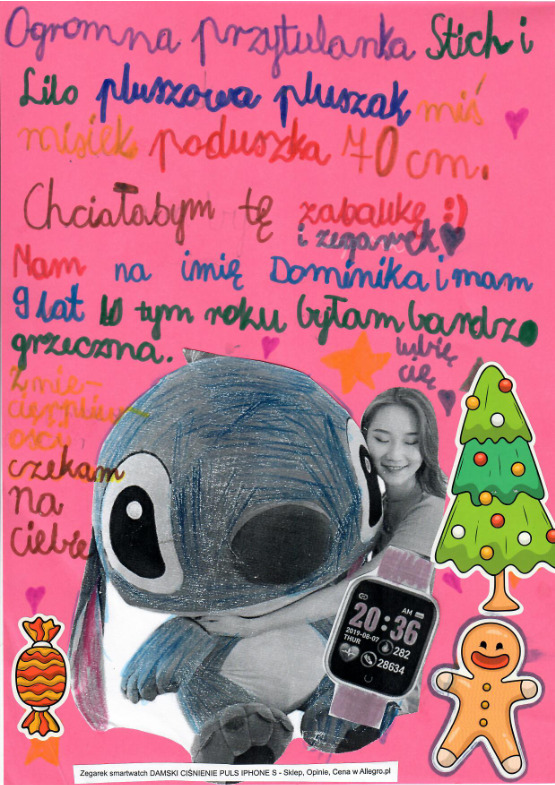 Ogromna przytulanka Stich i
Lilo pluszowa pluszak miś
misiek poduszka 70 cm.
Chciałabym tę zabawkę :)
i zegarek
Mam na imię Dominika i mam
9 lat W tym roku byłam bardzo
grzeczna.
lubię
cię
Z nie-
cierpliw-
ością
czekam
na
ciebie
AM
20:36
2019-06-07
THUR
282
28634
Zegarek smartwatch DAMSKI CIŚNIENIE PULS IPHONE S - Sklep, Opinie, Cena w Allegro.pl